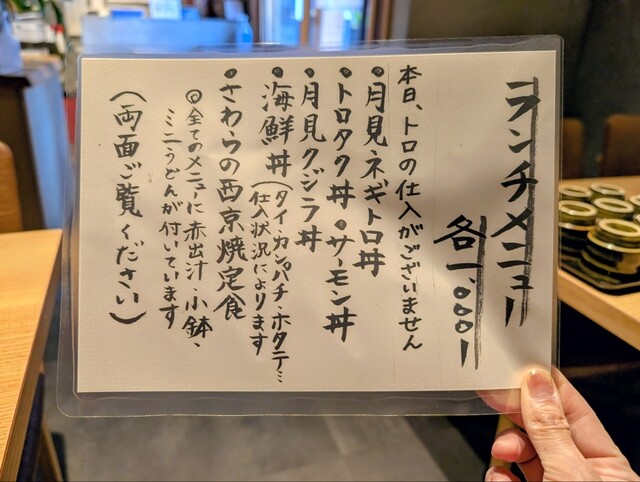 ランチメニュー
各一、〇〇〇ー
本日、トロの仕入がございません
・月見ネギトロ丼
・トロタク丼 ・サーモン丼
・月見クジラ丼
・海鮮丼(タイ・カンパチ・ホタテ…
仕入状況によります
・さわらの西京焼定食
◎全てのメニューに赤出汁・小鉢、
ミニうどんが付いています
(両面ご覧ください)